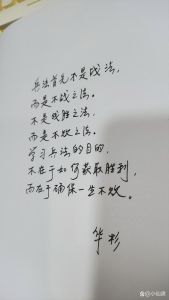 兵法首先不是战法，
而是不战之法。
不是战胜之法，
而是不败之法。
学习兵法的目的，
不在于如何获取胜利，
而在于确保一生不败。
华杉